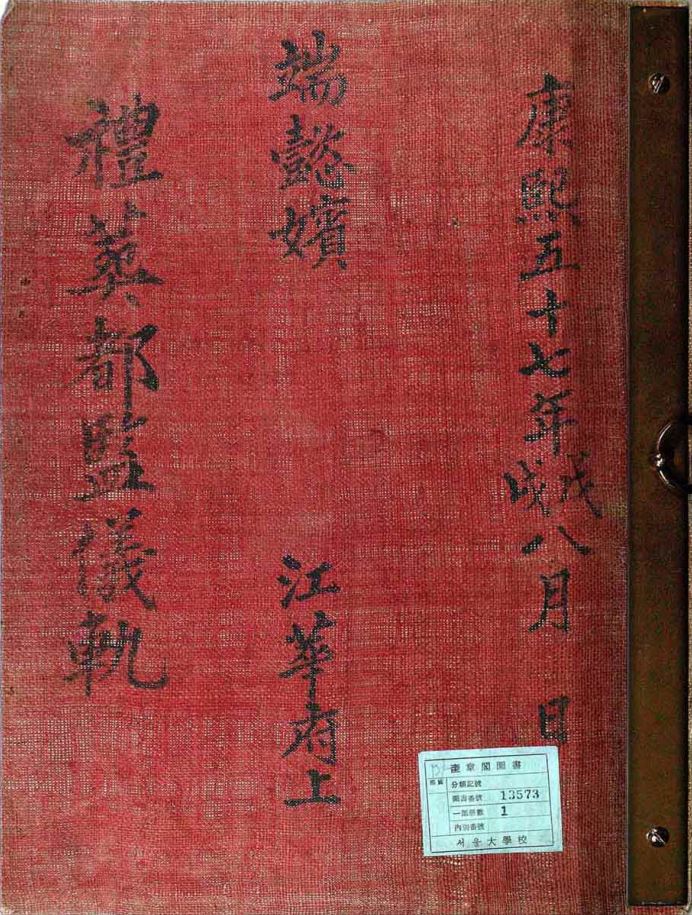 康熙五十七年戊戌八月 日
端懿嬪
江華府上
禮葬都監儀軌
奎章閣圖書
分類記號
圖書番號 13573
一部冊數 1
內別番號
서울大學校